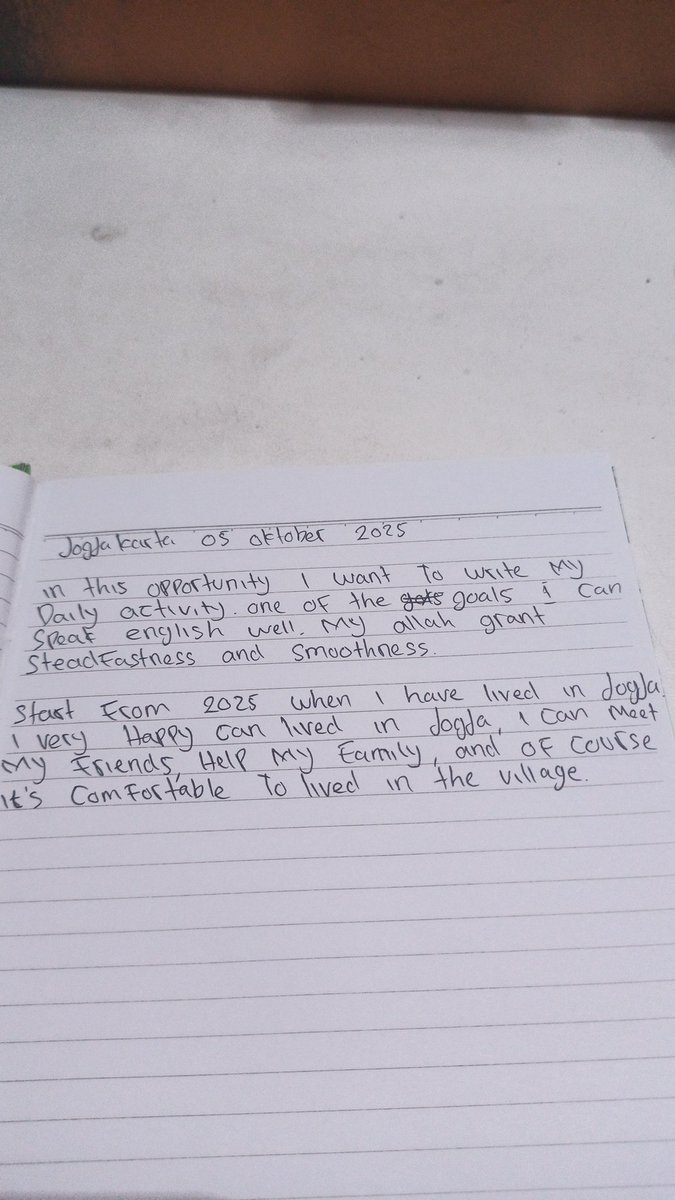 Jogjakarta 05 oktober 2025
in this opportunity I want to write My
Daily activity. one of the goals i can
Speak english well. My allah grant
SteadFastness and Smoothness.
Start From 2025 when I have lived in Jogja.
I very Happy can lived in Jogja, I can Meet
My Friends, Help My Family, and of course
it's Comfortable To lived in the village.